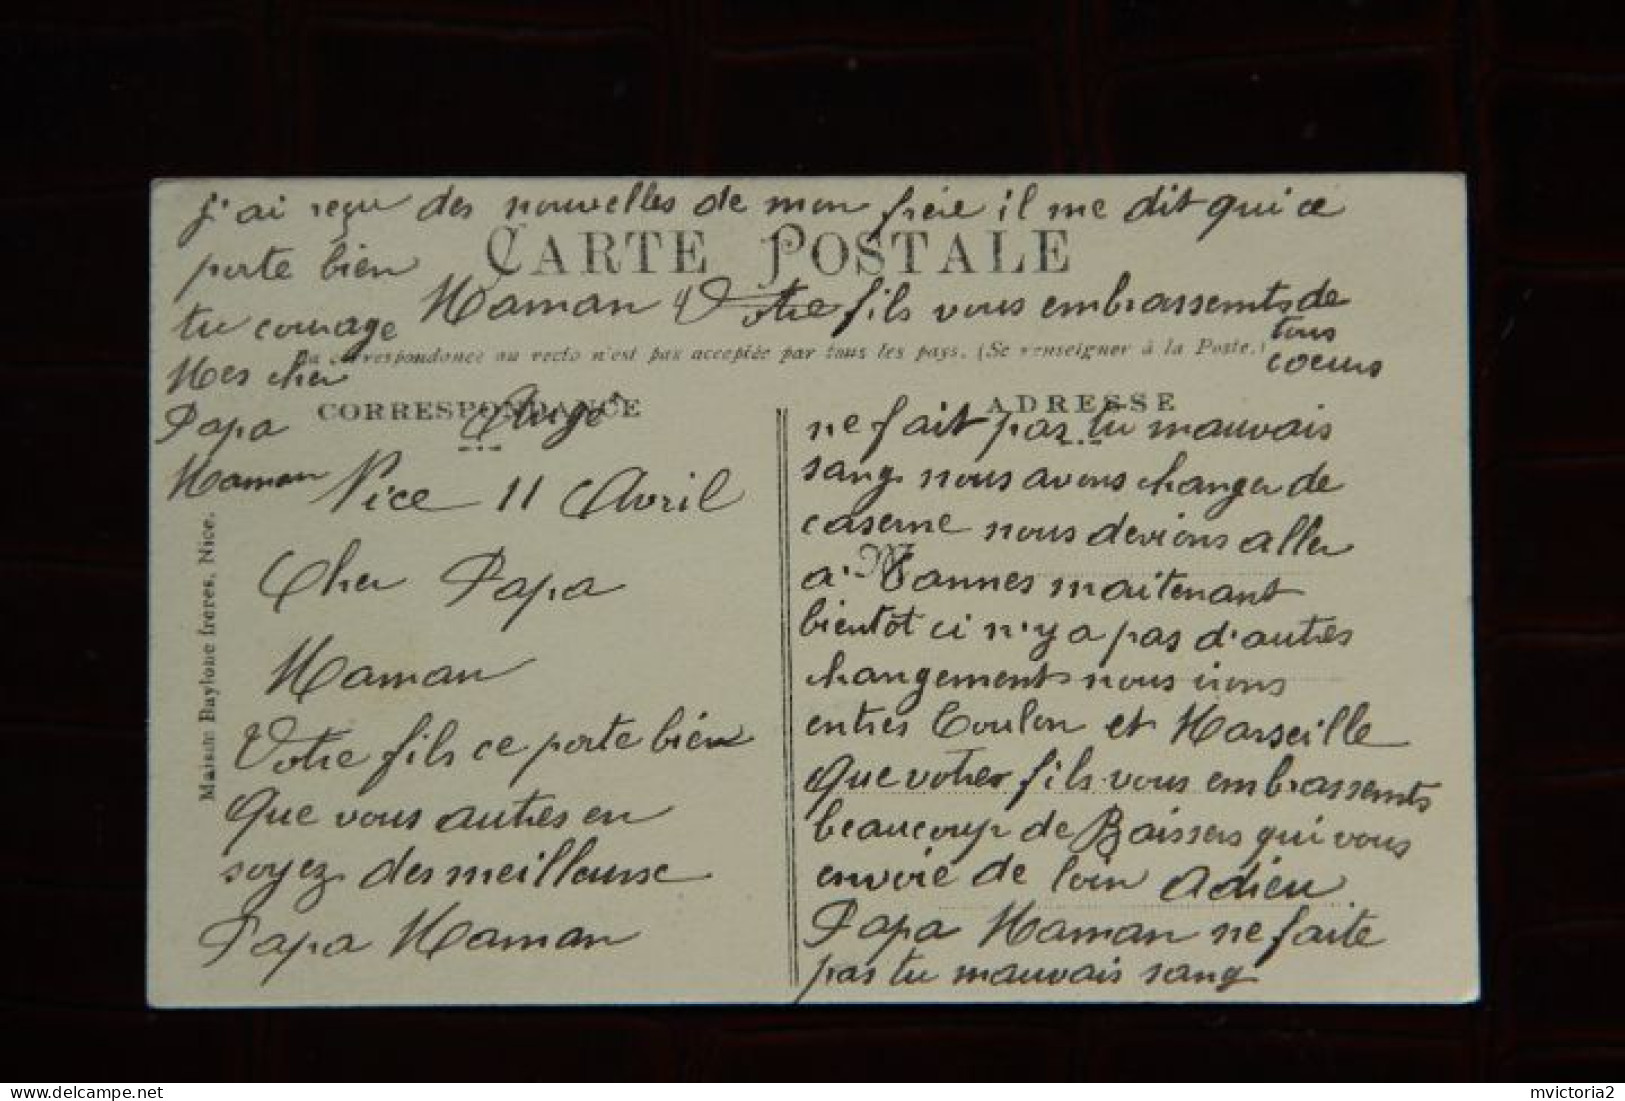 j'ai reçu des nouvelles de mon frère il me dit qui ce
porte bien
CARTE POSTALE
tu courage Maman Votre fils vous embrassemts de
tous
coeurs
La correspondance au recto n'est pas acceptée par tous les pays. (Se renseigner à la Poste.)
Mes cher
Papa
Maman
CORRESPONDANCE
Ange
Nice 11 Avril
Cher Papa
Maman
Votre fils ce porte bien
Que vous autres en
soyez des meilleurse
Papa Maman
ADRESSE
ne fait pas tu mauvais
sang nous avons changer de
caserne nous devions aller
a Cannes maitenant
bientôt ci n'y a pas d'autres
changements nous irons
entres Toulon et Marseille
Que votres fils vous embrassemts
beaucoup de Baissers qui vous
envoie de loin Adieu
Papa Maman ne faite
pas tu mauvais sang
Maison Baylone frères, Nice.
mvictoria2